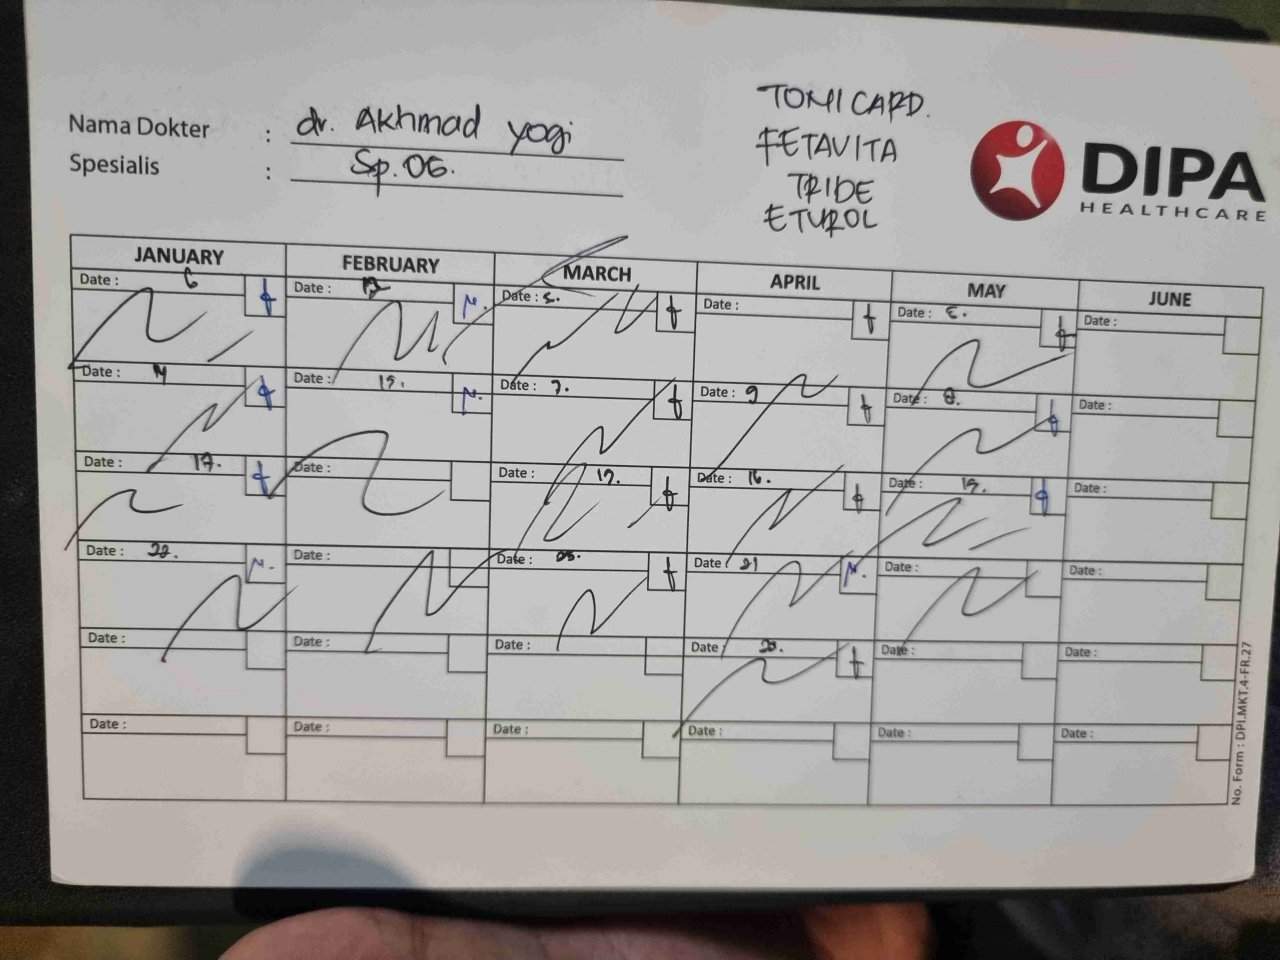 Nama Dokter : dr. Akhmad Yogi
Spesialis : Sp.OG.
TOMICARD.
FETAVITA
TRIDE
ETUROL
DIPA
HEALTHCARE
JANUARY FEBRUARY MARCH APRIL MAY JUNE
Date : 6 Date : Date : 5. Date : Date : 5. Date :
Date : 14 Date : 19. Date : 7. Date : 9 Date : 8. Date :
Date : 17. Date : Date : 17. Date : 16. Date : 19. Date :
Date : 22. Date : Date : 25. Date : 21 Date : Date :
Date : Date : Date : Date : 28. Date : Date :
Date : Date : Date : Date : Date : Date :
No. Form : DPI.MKT.4-FR.27